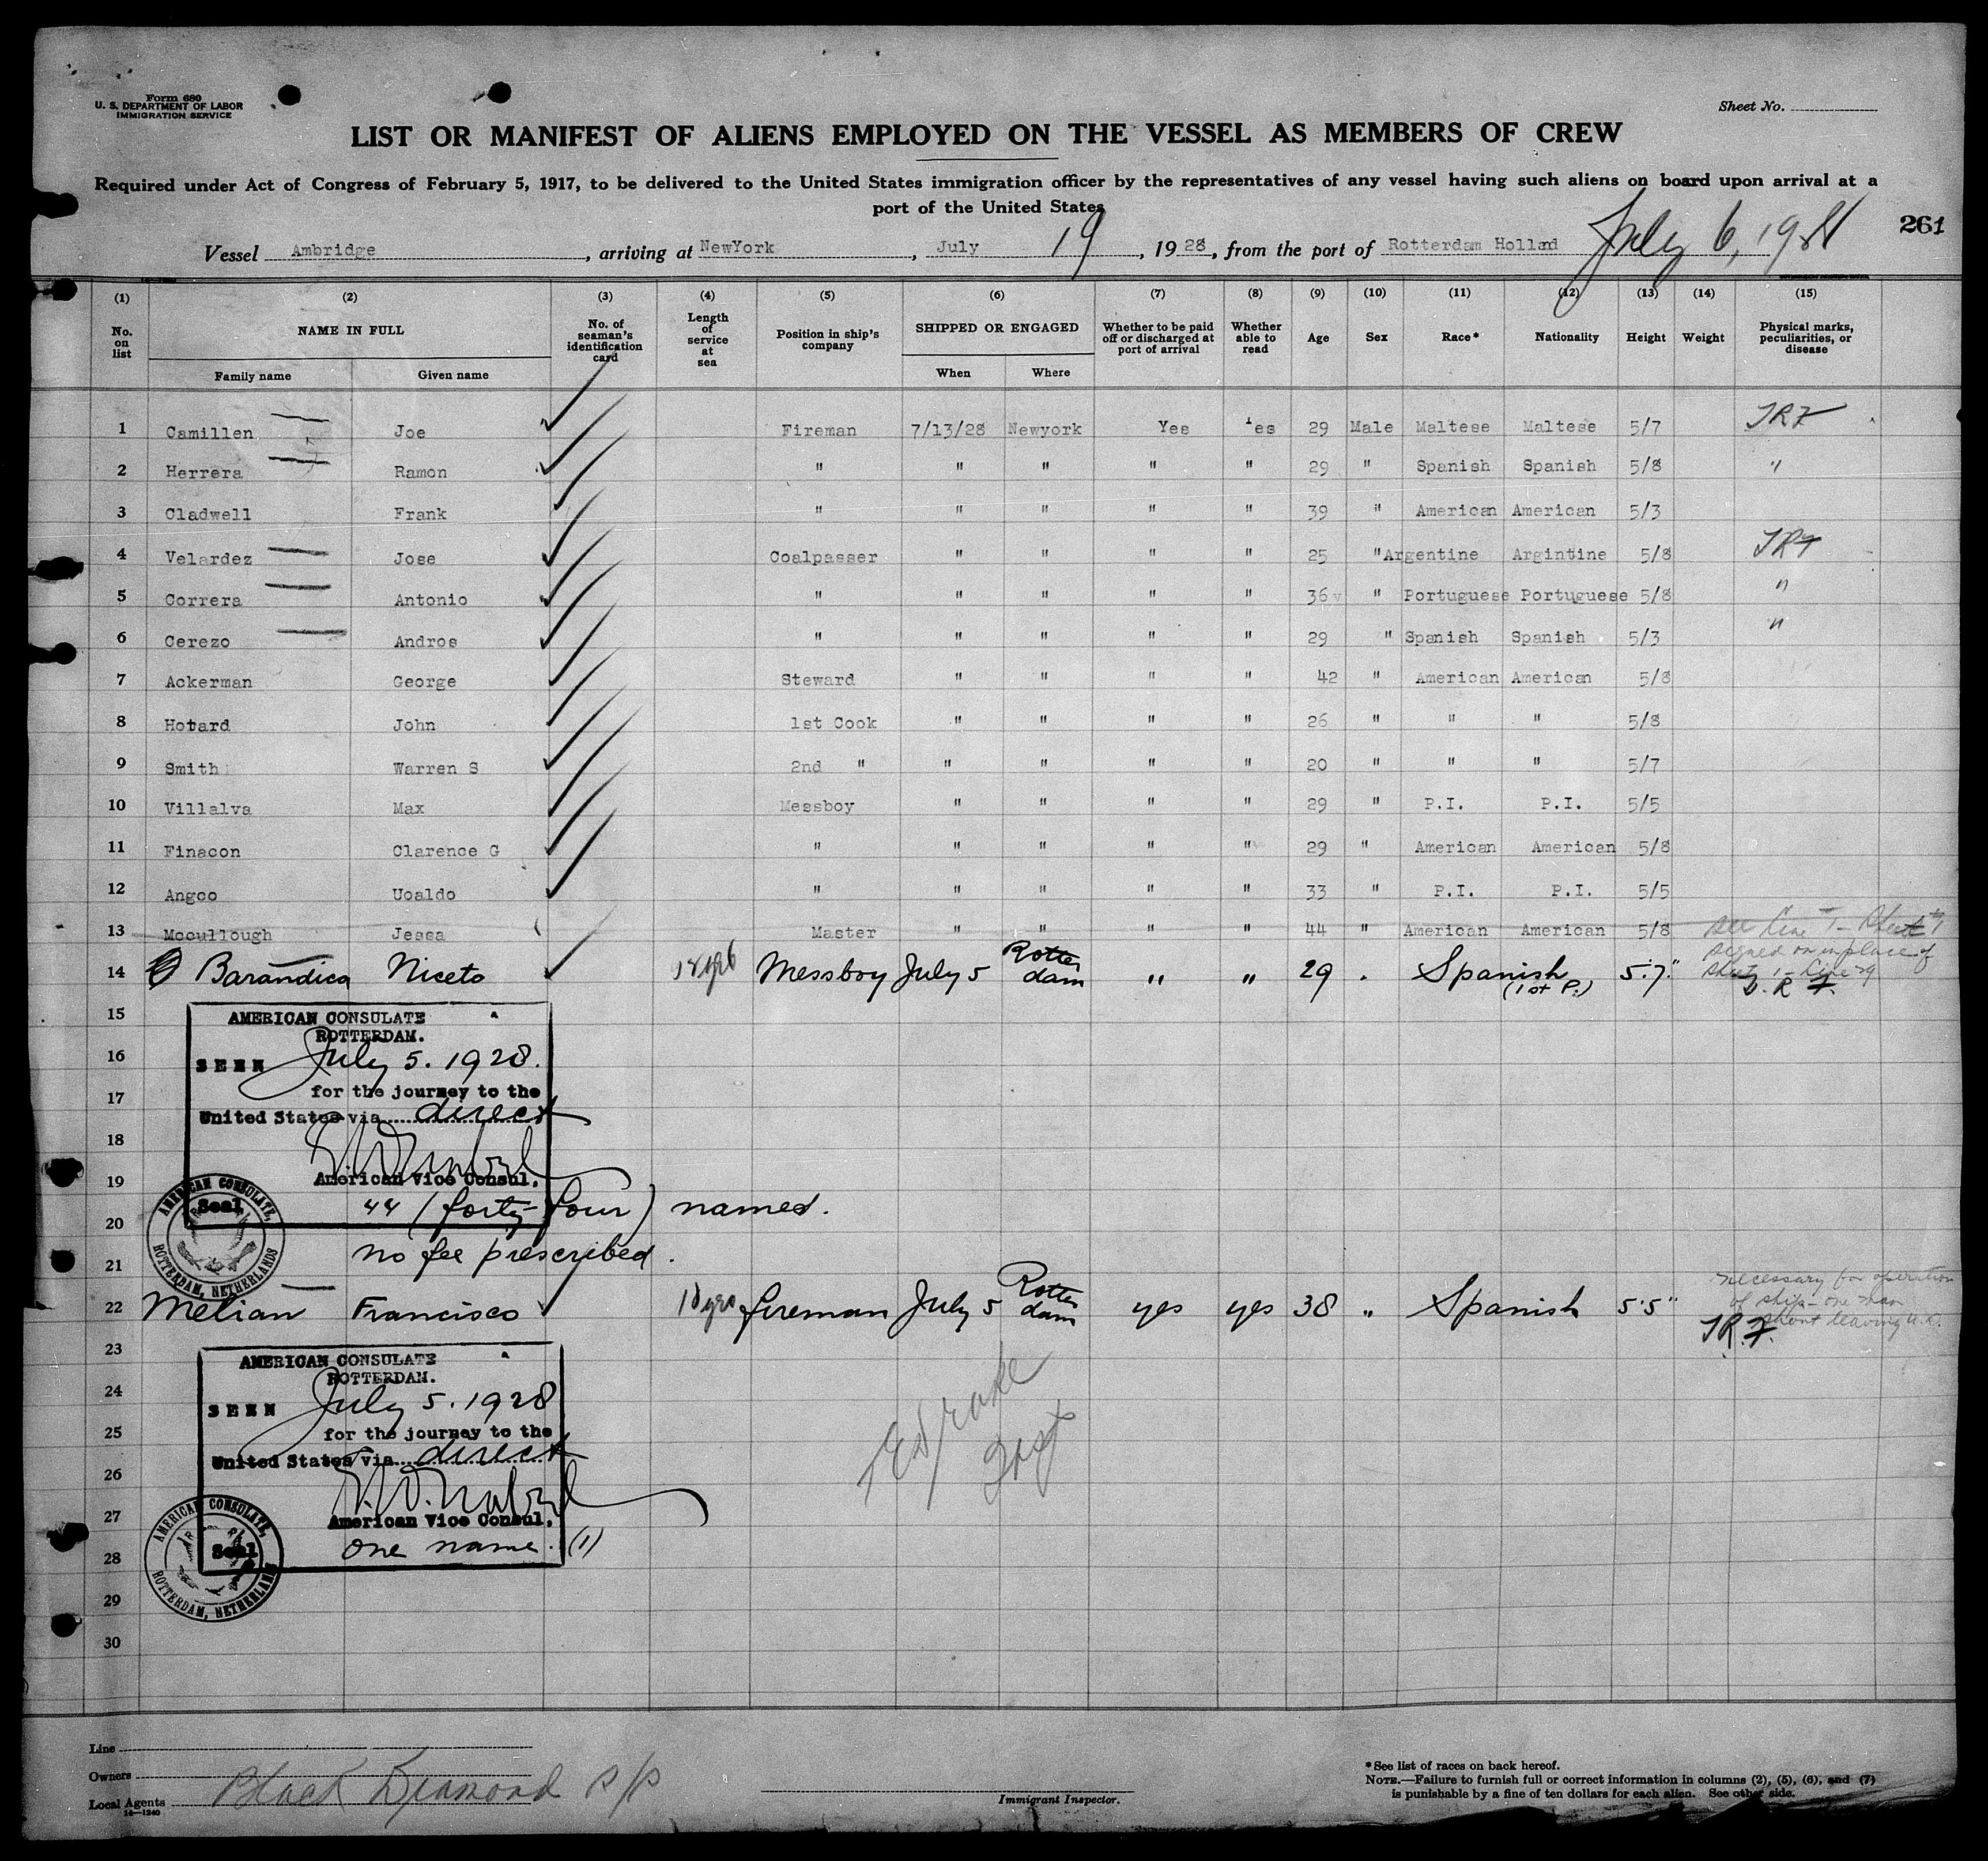 Form 680
U. S. DEPARTMENT OF LABOR
IMMIGRATION SERVICE
Sheet No.
LIST OR MANIFEST OF ALIENS EMPLOYED ON THE VESSEL AS MEMBERS OF CREW
Required under Act of Congress of February 5, 1917, to be delivered to the United States immigration officer by the representatives of any vessel having such aliens on board upon arrival at a
port of the United States
261
Vessel Ambridge, arriving at NewYork, July 19, 1928, from the port of Rotterdam Holland July 6, 1928
(1) (2) (3) (4) (5) (6) (7) (8) (9) (10) (11) (12) (13) (14) (15)
No. on list NAME IN FULL Family name Given name No. of seaman's identification card Length of service at sea Position in ship's company SHIPPED OR ENGAGED When Where Whether to be paid off or discharged at port of arrival Whether able to read Age Sex Race* Nationality Height Weight Physical marks, peculiarities, or disease
1 Camillen Joe Fireman 7/13/28 Newyork Yes Yes 29 Male Maltese Maltese 5/7
2 Herrera Ramon " " " " " 29 " Spanish Spanish 5/8 "
3 Cladwell Frank " " " " " 39 " American American 5/3
4 Velardez Jose Coalpasser " " " " 25 " Argentine Argintine 5/8
5 Correra Antonio " " " " " 36 " Portuguese Portuguese 5/8 "
6 Cerezo Andros " " " " " 29 " Spanish Spanish 5/3 "
7 Ackerman George Steward " " " " 42 " American American 5/8
8 Hotard John 1st Cook " " " " 26 " " " 5/8
9 Smith Warren S 2nd " " " " " 20 " " " 5/7
10 Villalva Max Messboy " " " " 29 " P.I. P.I. 5/5
11 Finacon Clarence G " " " " " 29 " American American 5/8
12 Angco Uoaldo " " " " " 33 " P.I. P.I. 5/5
13 Mccullough Jessa Master " " " " 44 " American American 5/8 See line 1 - Sheet #1
14 Barandica Niceto Messboy July 5 Rotterdam " " 29 " Spanish (1st P.) 5.7" signed on in place of Sheet 1 - line 29
15
AMERICAN CONSULATE
ROTTERDAM.
16
SEEN July 5. 1928.
17
for the journey to the
United States via direct
18
19
American Vice Consul.
Seal
AMERICAN CONSULATE, ROTTERDAM, NETHERLANDS
20
44 (forty-four) named.
21
no fee prescribed.
22 Melian Francisco 18 yrs fireman July 5 Rotterdam yes yes 38 " Spanish 5'5" necessary for operation of ship - one man short leaving
23
AMERICAN CONSULATE
ROTTERDAM.
24
SEEN July 5. 1928
25
for the journey to the
United States via direct
26
27
American Vice Consul.
28
one name. (1)
Seal
AMERICAN CONSULATE, ROTTERDAM, NETHERLANDS
29
30
Line
Owners
Local Agents Black Diamond S/S
14—1240
Immigrant Inspector.
*See list of races on back hereof.
NOTE.—Failure to furnish full or correct information in columns (2), (5), (6), and (7)
is punishable by a fine of ten dollars for each alien. See other side.